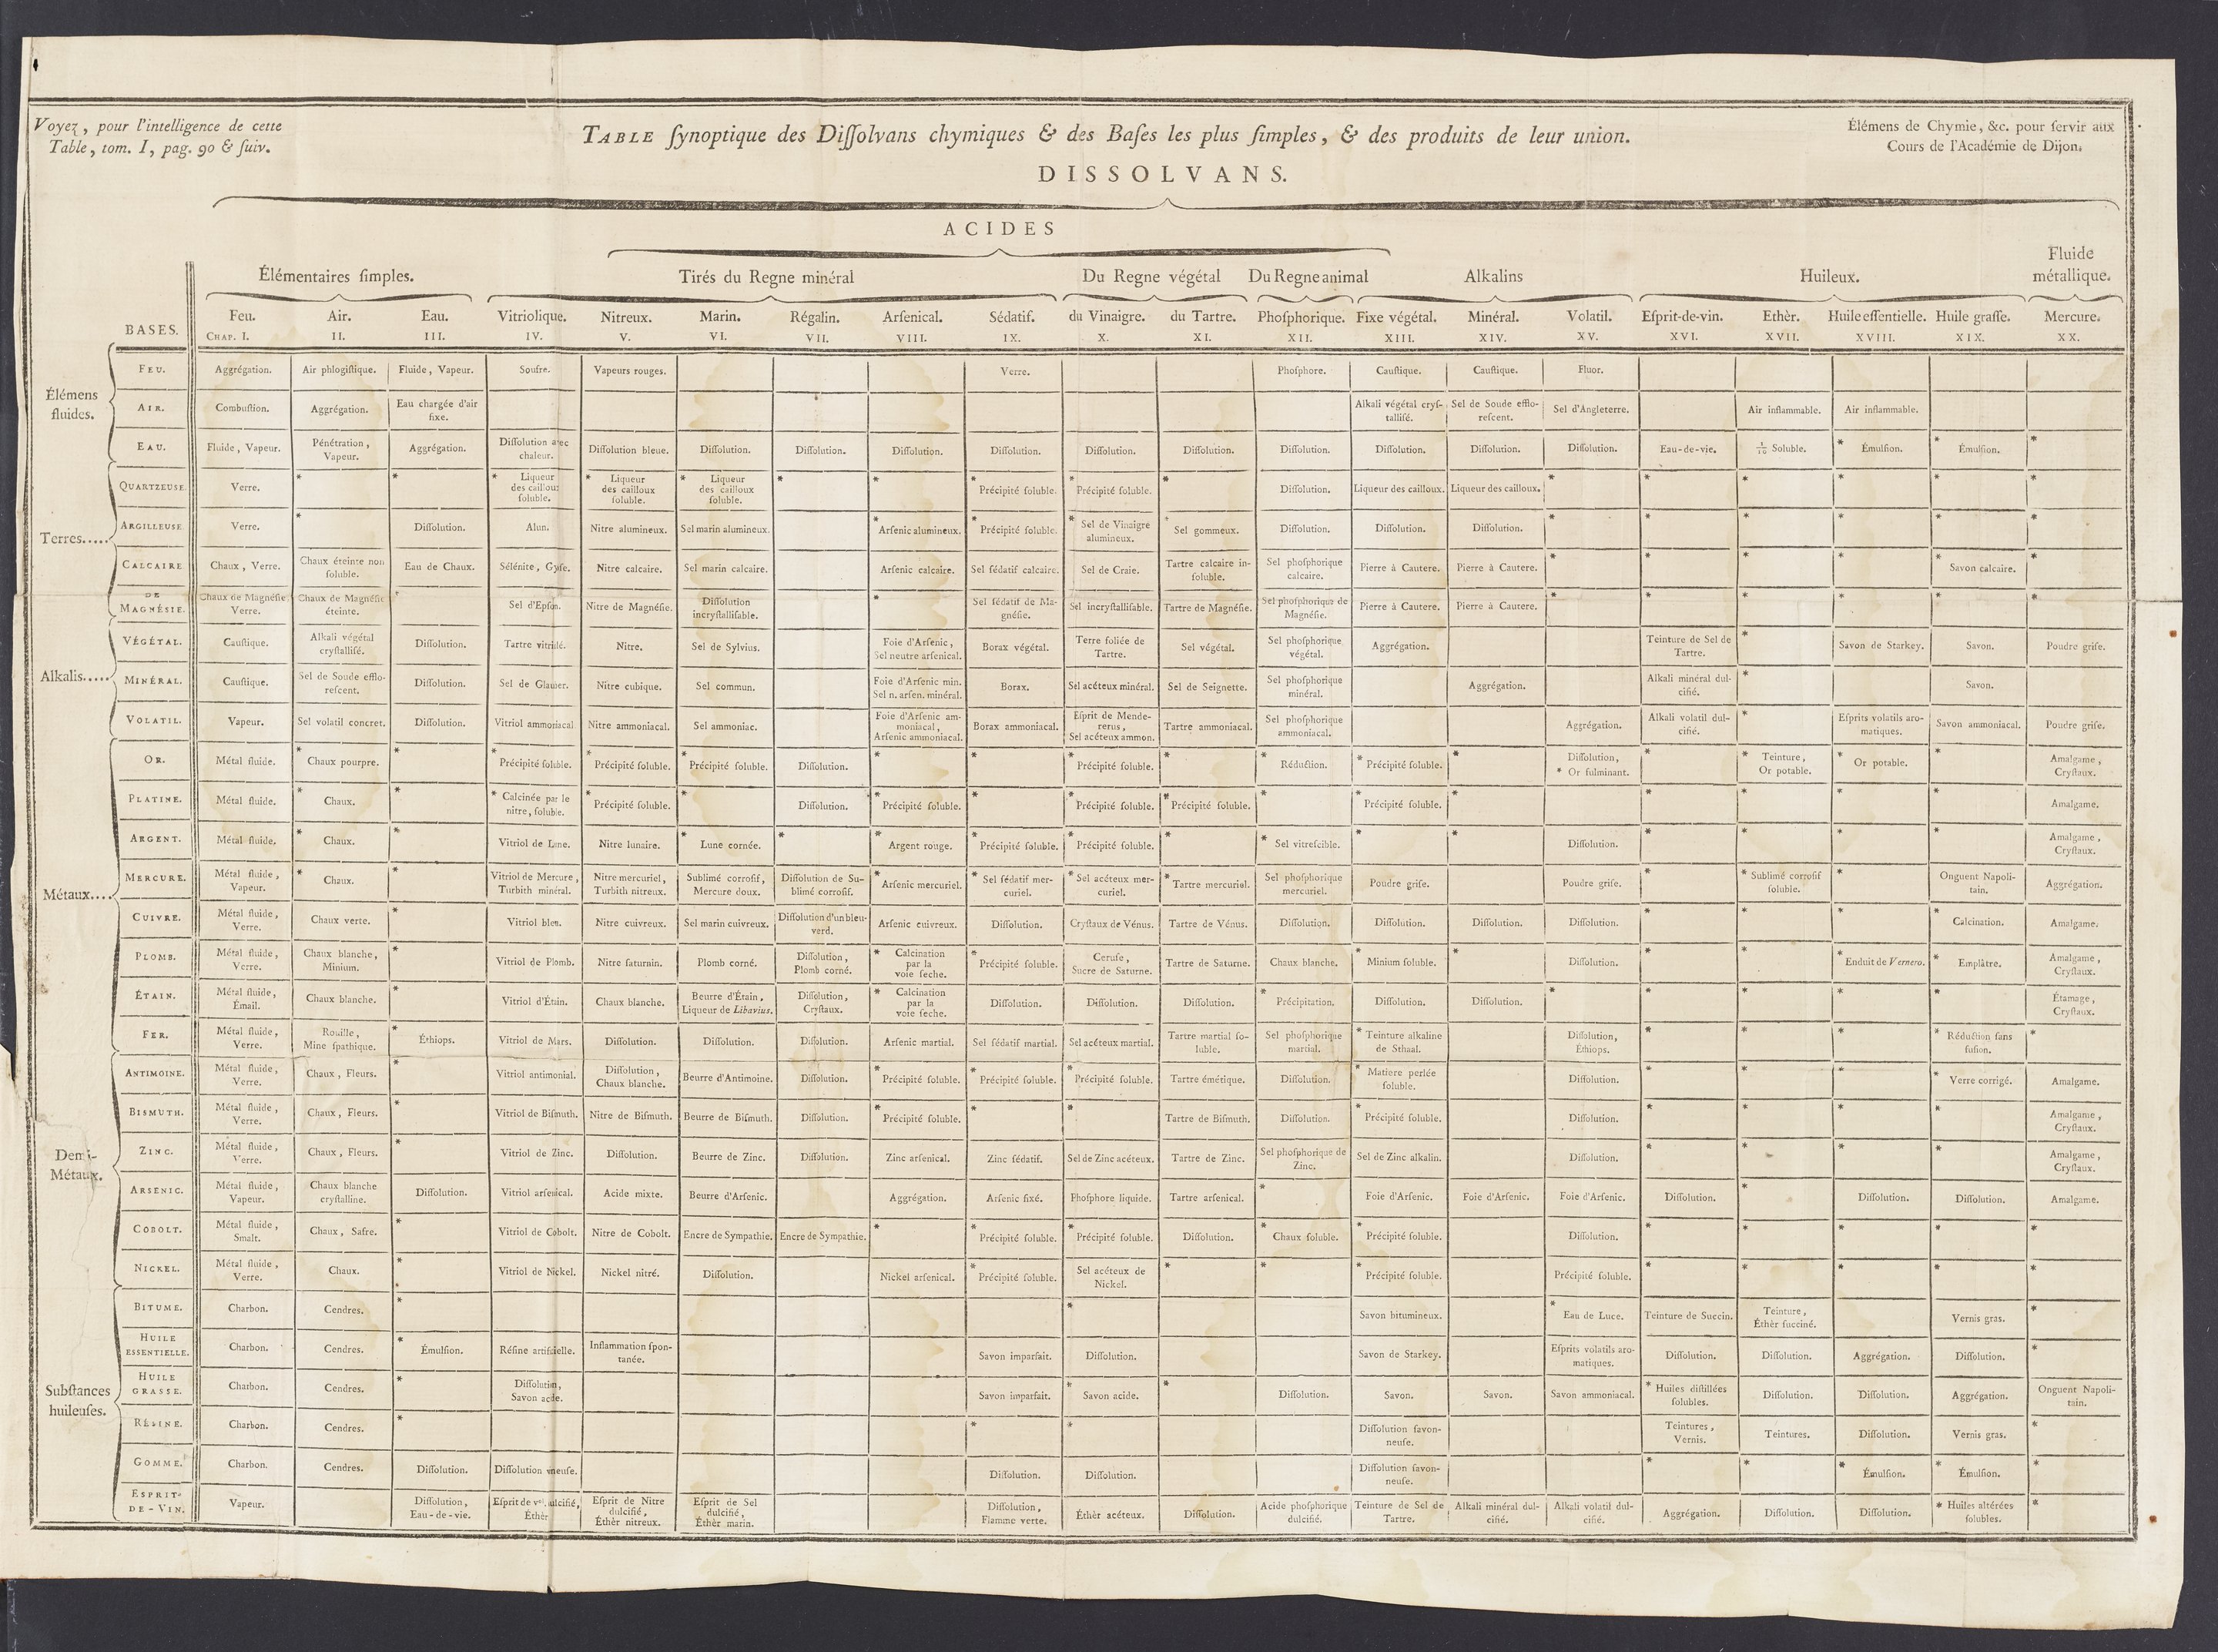 Voyez, pour l'intelligence de cette
Table, tom. I, pag. 90 & ſuiv.
TABLE ſynoptique des Diſſolvans chymiques & des Baſes les plus ſimples, & des produits de leur union.
Élémens de Chymie, &c. pour ſervir aux
Cours de l'Académie de Dijon.
DISSOLVANS.
ACIDES
Élémentaires ſimples. Tirés du Regne minéral Du Regne végétal Du Regne animal Alkalins Huileux. Fluide métallique.
BASES. Feu. Air. Eau. Vitriolique. Nitreux. Marin. Régalin. Arſenical. Sédatif. du Vinaigre. du Tartre. Phoſphorique. Fixe végétal. Minéral. Volatil. Eſprit-de-vin. Ethèr. Huile eſſentielle. Huile graſſe. Mercure.
CHAP. I. II. III. IV. V. VI. VII. VIII. IX. X. XI. XII. XIII. XIV. XV. XVI. XVII. XVIII. XIX. XX.
Élémens fluides.
FEU. Aggrégation. Air phlogiſtique. Fluide, Vapeur. Soufre. Vapeurs rouges. Verre. Phoſphore. Cauſtique. Cauſtique. Fluor.
AIR. Combuſtion. Aggrégation. Eau chargée d'air fixe. Alkali végétal cryſtalliſé. Sel de Soude effloreſcent. Sel d'Angleterre. Air inflammable. Air inflammable.
EAU. Fluide, Vapeur. Pénétration, Vapeur. Aggrégation. Diſſolution avec chaleur. Diſſolution bleue. Diſſolution. Diſſolution. Diſſolution. Diſſolution. Diſſolution. Diſſolution. Diſſolution. Diſſolution. Diſſolution. Diſſolution. Eau-de-vie. 1/10 Soluble. * Émulſion. * Émulſion. *
Terres.....
QUARTZEUSE. Verre. * * * Liqueur des cailloux ſoluble. * Liqueur des cailloux ſoluble. * Liqueur des cailloux ſoluble. * * * Précipité ſoluble. * Précipité ſoluble. * Diſſolution. Liqueur des cailloux. Liqueur des cailloux. * * * * * *
ARGILLEUSE. Verre. * Diſſolution. Alun. Nitre alumineux. Sel marin alumineux. * Arſenic alumineux. * Précipité ſoluble. * Sel de Vinaigre alumineux. * Sel gommeux. Diſſolution. Diſſolution. Diſſolution. * * * * * *
CALCAIRE. Chaux, Verre. Chaux éteinte non ſoluble. Eau de Chaux. Sélénite, Gyſe. Nitre calcaire. Sel marin calcaire. Arſenic calcaire. Sel ſédatif calcaire. Sel de Craie. Tartre calcaire inſoluble. Sel phoſphorique calcaire. Pierre à Cautere. Pierre à Cautere. * * * * * Savon calcaire. *
DE MAGNÉSIE. Chaux de Magnéſie, Verre. Chaux de Magnéſie éteinte. * Sel d'Epſon. Nitre de Magnéſie. Diſſolution incryſtalliſable. * Sel ſédatif de Magnéſie. Sel incryſtalliſable. Tartre de Magnéſie. Sel phoſphorique de Magnéſie. Pierre à Cautere. Pierre à Cautere. * * * * * *
Alkalis.....
VÉGÉTAL. Cauſtique. Alkali végétal cryſtalliſé. Diſſolution. Tartre vitriolé. Nitre. Sel de Sylvius. Foie d'Arſenic, Sel neutre arſenical. Borax végétal. Terre foliée de Tartre. Sel végétal. Sel phoſphorique végétal. Aggrégation. Teinture de Sel de Tartre. * Savon de Starkey. Savon. Poudre griſe.
MINÉRAL. Cauſtique. Sel de Soude effloreſcent. Diſſolution. Sel de Glauber. Nitre cubique. Sel commun. Foie d'Arſenic min. Sel n. arſen. minéral. Borax. Sel acéteux minéral. Sel de Seignette. Sel phoſphorique minéral. Aggrégation. Alkali minéral dulcifié. * Savon.
VOLATIL. Vapeur. Sel volatil concret. Diſſolution. Vitriol ammoniacal Nitre ammoniacal. Sel ammoniac. Foie d'Arſenic ammoniacal, Arſenic ammoniacal. Borax ammoniacal. Eſprit de Mendererus, Sel acéteux ammon. Tartre ammoniacal. Sel phoſphorique ammoniacal. Aggrégation. Alkali volatil dulcifié. * Eſprits volatils aromatiques. Savon ammoniacal. Poudre griſe.
Métaux....
OR. Métal fluide. * Chaux pourpre. * * Précipité ſoluble. * Précipité ſoluble. * Précipité ſoluble. Diſſolution. * * * Précipité ſoluble. * * Réduction. * Précipité ſoluble. * Diſſolution, * Or fulminant. * * Teinture, Or potable. * Or potable. * Amalgame, Cryſtaux.
PLATINE. Métal fluide. * Chaux. * * Calcinée par le nitre, ſoluble. * Précipité ſoluble. * Diſſolution. * Précipité ſoluble. * * Précipité ſoluble. * Précipité ſoluble. * * Précipité ſoluble. * * * * * Amalgame.
ARGENT. Métal fluide. * Chaux. * Vitriol de Lune. Nitre lunaire. * Lune cornée. * * Argent rouge. * Précipité ſoluble. * Précipité ſoluble. * * Sel vitreſcible. * * Diſſolution. * * * * Amalgame, Cryſtaux.
MERCURE. Métal fluide, Vapeur. * Chaux. * Vitriol de Mercure, Turbith minéral. Nitre mercuriel, Turbith nitreux. Sublimé corroſif, Mercure doux. Diſſolution de Sublimé corroſif. * Arſenic mercuriel. * Sel ſédatif mercuriel. * Sel acéteux mercuriel. * Tartre mercuriel. Sel phoſphorique mercuriel. Poudre griſe. Poudre griſe. * * Sublimé corroſif ſoluble. * Onguent Napolitain. Aggrégation.
CUIVRE. Métal fluide, Verre. Chaux verte. * Vitriol bleu. Nitre cuivreux. Sel marin cuivreux. Diſſolution d'un bleu-verd. Arſenic cuivreux. Diſſolution. Cryſtaux de Vénus. Tartre de Vénus. Diſſolution. Diſſolution. Diſſolution. Diſſolution. * * * * Calcination. Amalgame.
PLOMB. Métal fluide, Verre. Chaux blanche, Minium. * Vitriol de Plomb. Nitre ſaturnin. Plomb corné. Diſſolution, Plomb corné. * Calcination par la voie ſeche. * Précipité ſoluble. Ceruſe, Sucre de Saturne. Tartre de Saturne. Chaux blanche. * Minium ſoluble. * Diſſolution. * * * Enduit de Vernero. * Emplâtre. Amalgame, Cryſtaux.
ÉTAIN. Métal fluide, Émail. Chaux blanche. * Vitriol d'Étain. Chaux blanche. Beurre d'Étain, Liqueur de Libavius. Diſſolution, Cryſtaux. * Calcination par la voie ſeche. Diſſolution. Diſſolution. Diſſolution. * Précipitation. Diſſolution. Diſſolution. * * * * * Étamage, Cryſtaux.
FER. Métal fluide, Verre. Rouille, Mine ſpathique. * Éthiops. Vitriol de Mars. Diſſolution. Diſſolution. Diſſolution. Arſenic martial. Sel ſédatif martial. Sel acéteux martial. Tartre martial ſoluble. Sel phoſphorique martial. * Teinture alkaline de Sthaal. Diſſolution, Éthiops. * * * * Réduction ſans fuſion. *
Demi-Métaux.
ANTIMOINE. Métal fluide, Verre. Chaux, Fleurs. * Vitriol antimonial. Diſſolution, Chaux blanche. Beurre d'Antimoine. Diſſolution. * Précipité ſoluble. * Précipité ſoluble. * Précipité ſoluble. Tartre émétique. Diſſolution. * Matiere perlée ſoluble. Diſſolution. * * * * Verre corrigé. Amalgame.
BISMUTH. Métal fluide, Verre. Chaux, Fleurs. * Vitriol de Biſmuth. Nitre de Biſmuth. Beurre de Biſmuth. Diſſolution. * Précipité ſoluble. * * Tartre de Biſmuth. Diſſolution. * Précipité ſoluble. Diſſolution. * * * * Amalgame, Cryſtaux.
ZINC. Métal fluide, Verre. Chaux, Fleurs. * Vitriol de Zinc. Diſſolution. Beurre de Zinc. Diſſolution. Zinc arſenical. Zinc ſédatif. Sel de Zinc acéteux. Tartre de Zinc. Sel phoſphorique de Zinc. Sel de Zinc alkalin. Diſſolution. * * * * Amalgame, Cryſtaux.
ARSENIC. Métal fluide, Vapeur. Chaux blanche cryſtalline. Diſſolution. Vitriol arſenical. Acide mixte. Beurre d'Arſenic. Aggrégation. Arſenic fixé. Phoſphore liquide. Tartre arſenical. * Foie d'Arſenic. Foie d'Arſenic. Foie d'Arſenic. Diſſolution. * Diſſolution. Diſſolution. Amalgame.
COBOLT. Métal fluide, Smalt. Chaux, Safre. * Vitriol de Cobolt. Nitre de Cobolt. Encre de Sympathie. Encre de Sympathie. * * Précipité ſoluble. * Précipité ſoluble. Diſſolution. * Chaux ſoluble. * Précipité ſoluble. Diſſolution. * * * * *
NICKEL. Métal fluide, Verre. Chaux. * Vitriol de Nickel. Nickel nitré. Diſſolution. Nickel arſenical. * Précipité ſoluble. Sel acéteux de Nickel. * * * Précipité ſoluble. Précipité ſoluble. * * * * *
Subſtances huileuſes.
BITUME. Charbon. Cendres. * * Savon bitumineux. * Eau de Luce. Teinture de Succin. Teinture, Éthèr ſucciné. Vernis gras. *
HUILE ESSENTIELLE. Charbon. Cendres. * Émulſion. Réſine artificielle. Inflammation ſpontanée. Savon imparfait. Diſſolution. Savon de Starkey. Eſprits volatils aromatiques. Diſſolution. Diſſolution. Aggrégation. Diſſolution. *
HUILE GRASSE. Charbon. Cendres. * Diſſolution, Savon acide. Savon imparfait. * Savon acide. * Diſſolution. Savon. Savon. Savon ammoniacal. * Huiles diſtillées ſolubles. Diſſolution. Diſſolution. Aggrégation. Onguent Napolitain.
RÉSINE. Charbon. Cendres. * * * Diſſolution ſavonneuſe. Teintures, Vernis. Teintures. Diſſolution. Vernis gras. *
GOMME. Charbon. Cendres. Diſſolution. Diſſolution vineuſe. Diſſolution. Diſſolution. Diſſolution ſavonneuſe. * * * Émulſion. * Émulſion. *
ESPRIT-DE-VIN. Vapeur. Diſſolution, Eau-de-vie. Eſprit de dulcifié, Éthèr Eſprit de Nitre dulcifié, Éthèr nitreux. Eſprit de Sel dulcifié, Éthèr marin. Diſſolution, Flamme verte. Éthèr acéteux. Diſſolution. Acide phoſphorique dulcifié. Teinture de Sel de Tartre. Alkali minéral dulcifié. Alkali volatil dulcifié. Aggrégation. Diſſolution. Diſſolution. * Huiles altérées ſolubles. *